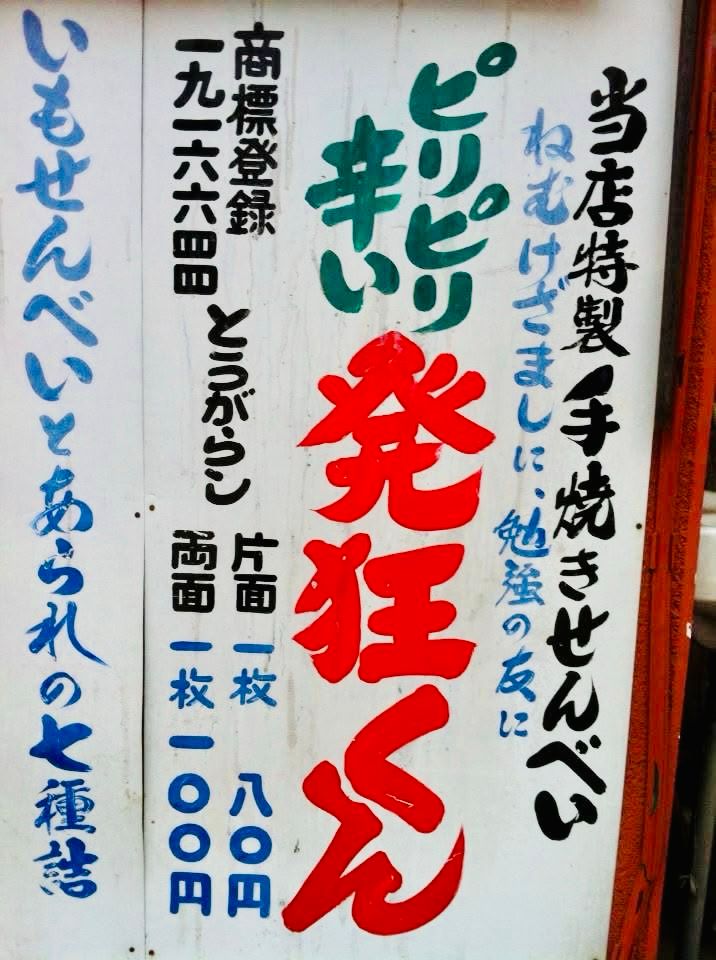 当店特製手焼きせんべい
ねむけざましに、勉強の友に
ピリピリ
辛い
発狂くん
商標登録
一九一六六四四
とうがらし
片面一枚 八〇円
両面一枚一〇〇円
いもせんべいとあられの七種詰